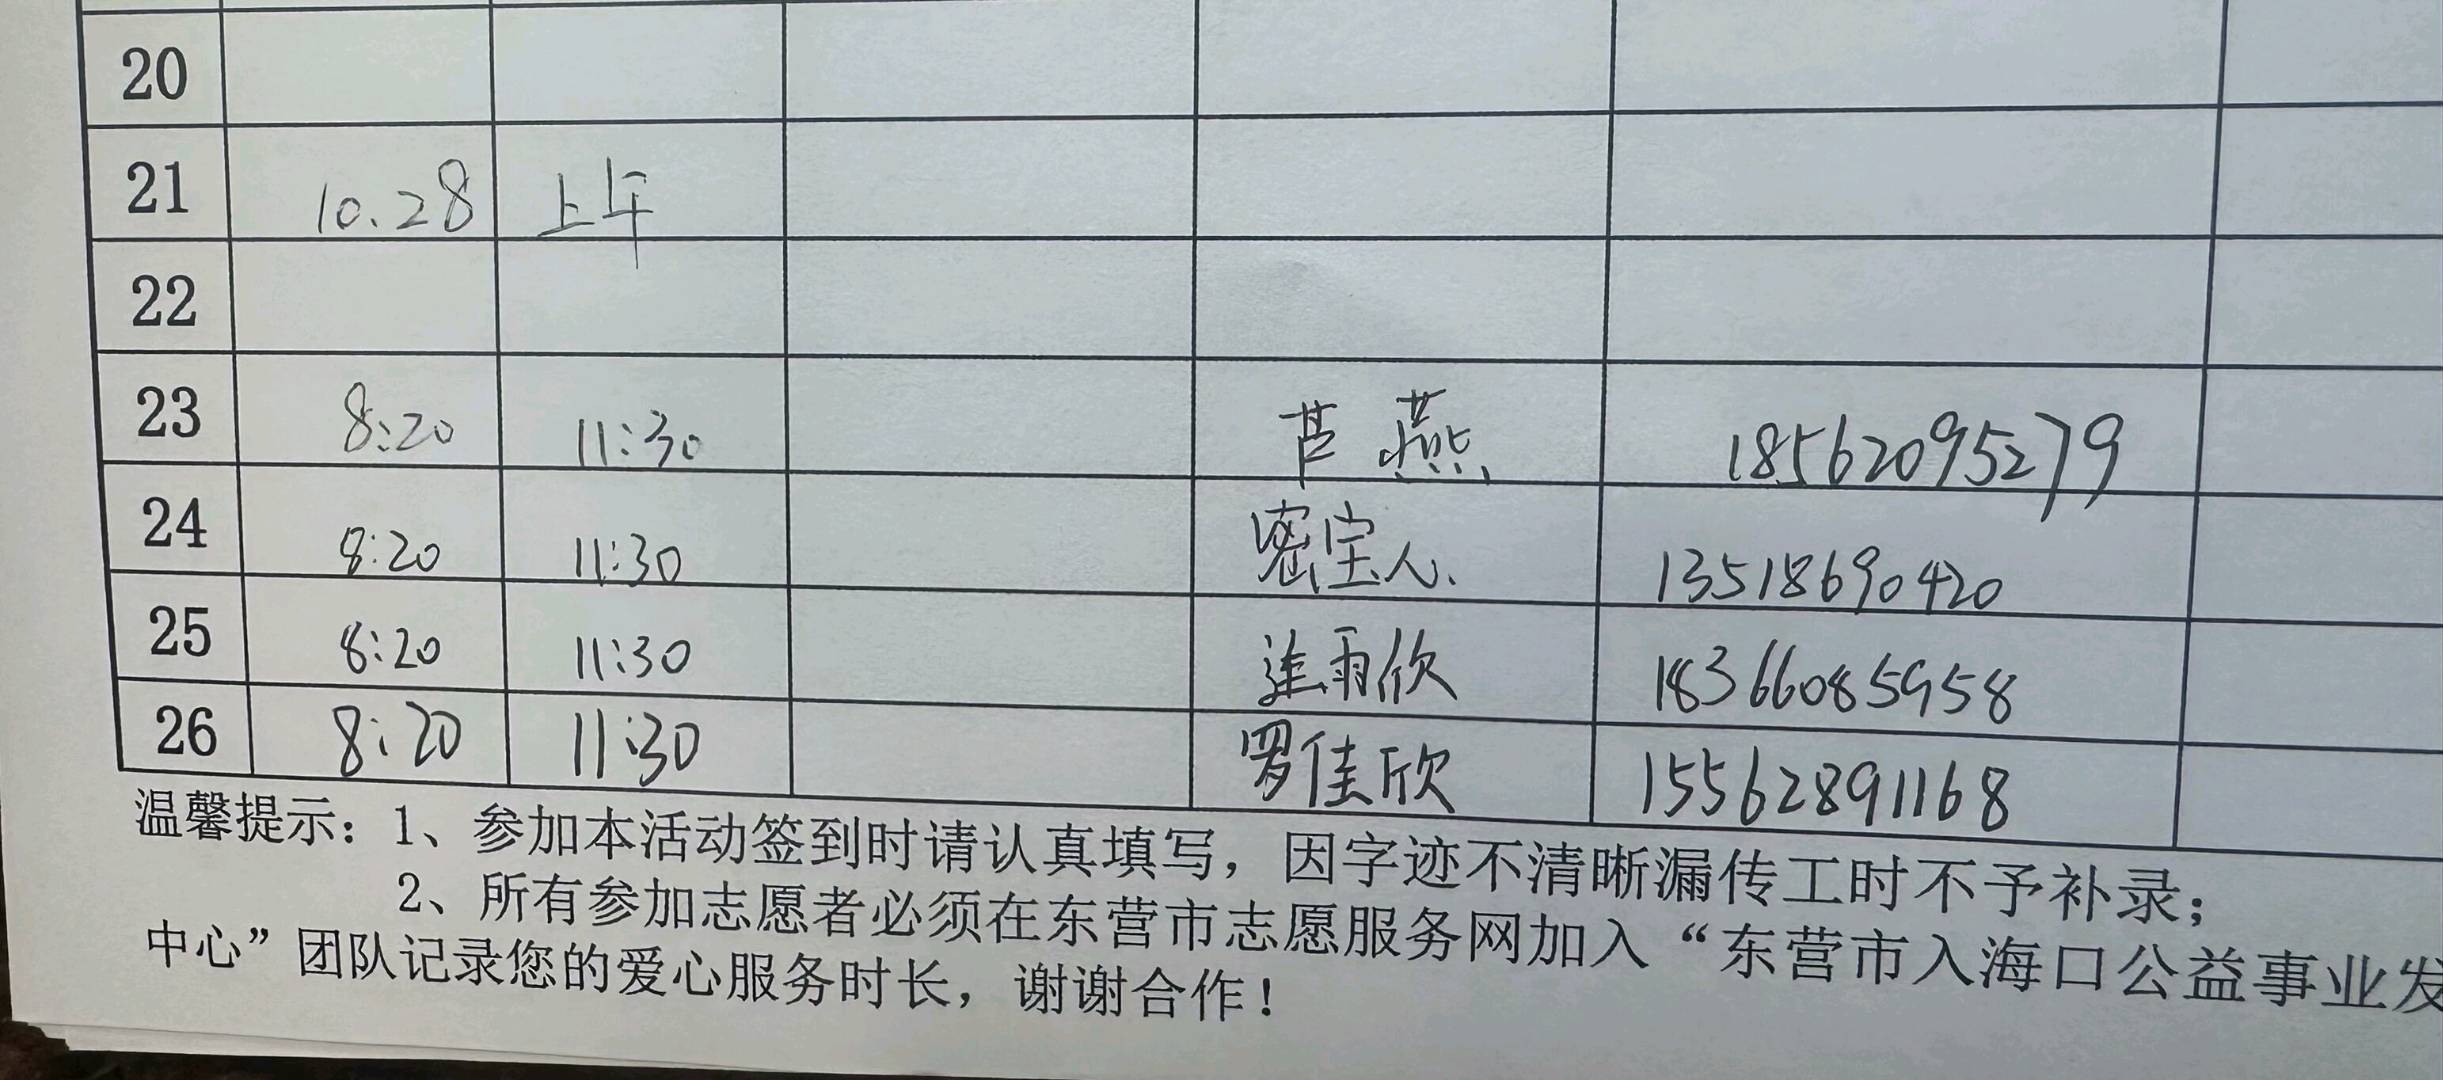 20
21 10.28 上午
22
23 8:20 11:30 芦燕 18562095279
24 8:20 11:30 密宝人 13518690420
25 8:20 11:30 雨欣 18366085958
26 8:20 11:30 罗佳欣 15562891168
温馨提示：1、参加本活动签到时请认真填写，因字迹不清晰漏传工时不予补录；
2、所有参加志愿者必须在东营市志愿服务网加入“东营市入海口公益事业发
中心”团队记录您的爱心服务时长，谢谢合作！